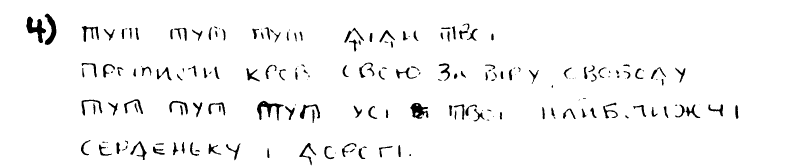 4) ТУТ ТУТ ТУТ ДІДИ ТВОЇ
ПРОЛИЛИ КРОВ СВОЮ ЗА ВІРУ, СВОБОДУ
ТУТ ТУТ ТУТ УСІ ТВОЇ НАЙБЛИЖЧІ
СЕРДЕНЬКУ І ДОРОГІ.